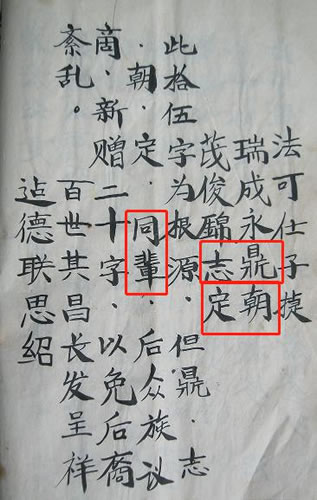 法可仕子捷
瑞成永鼎朝
茂俊錦志定
此拾伍字为根源、但鼎.志
.朝.定.同輩、后众族议
商、新赠二十字、以免后裔
紊乱。
百世其昌长发呈祥
德联思紹